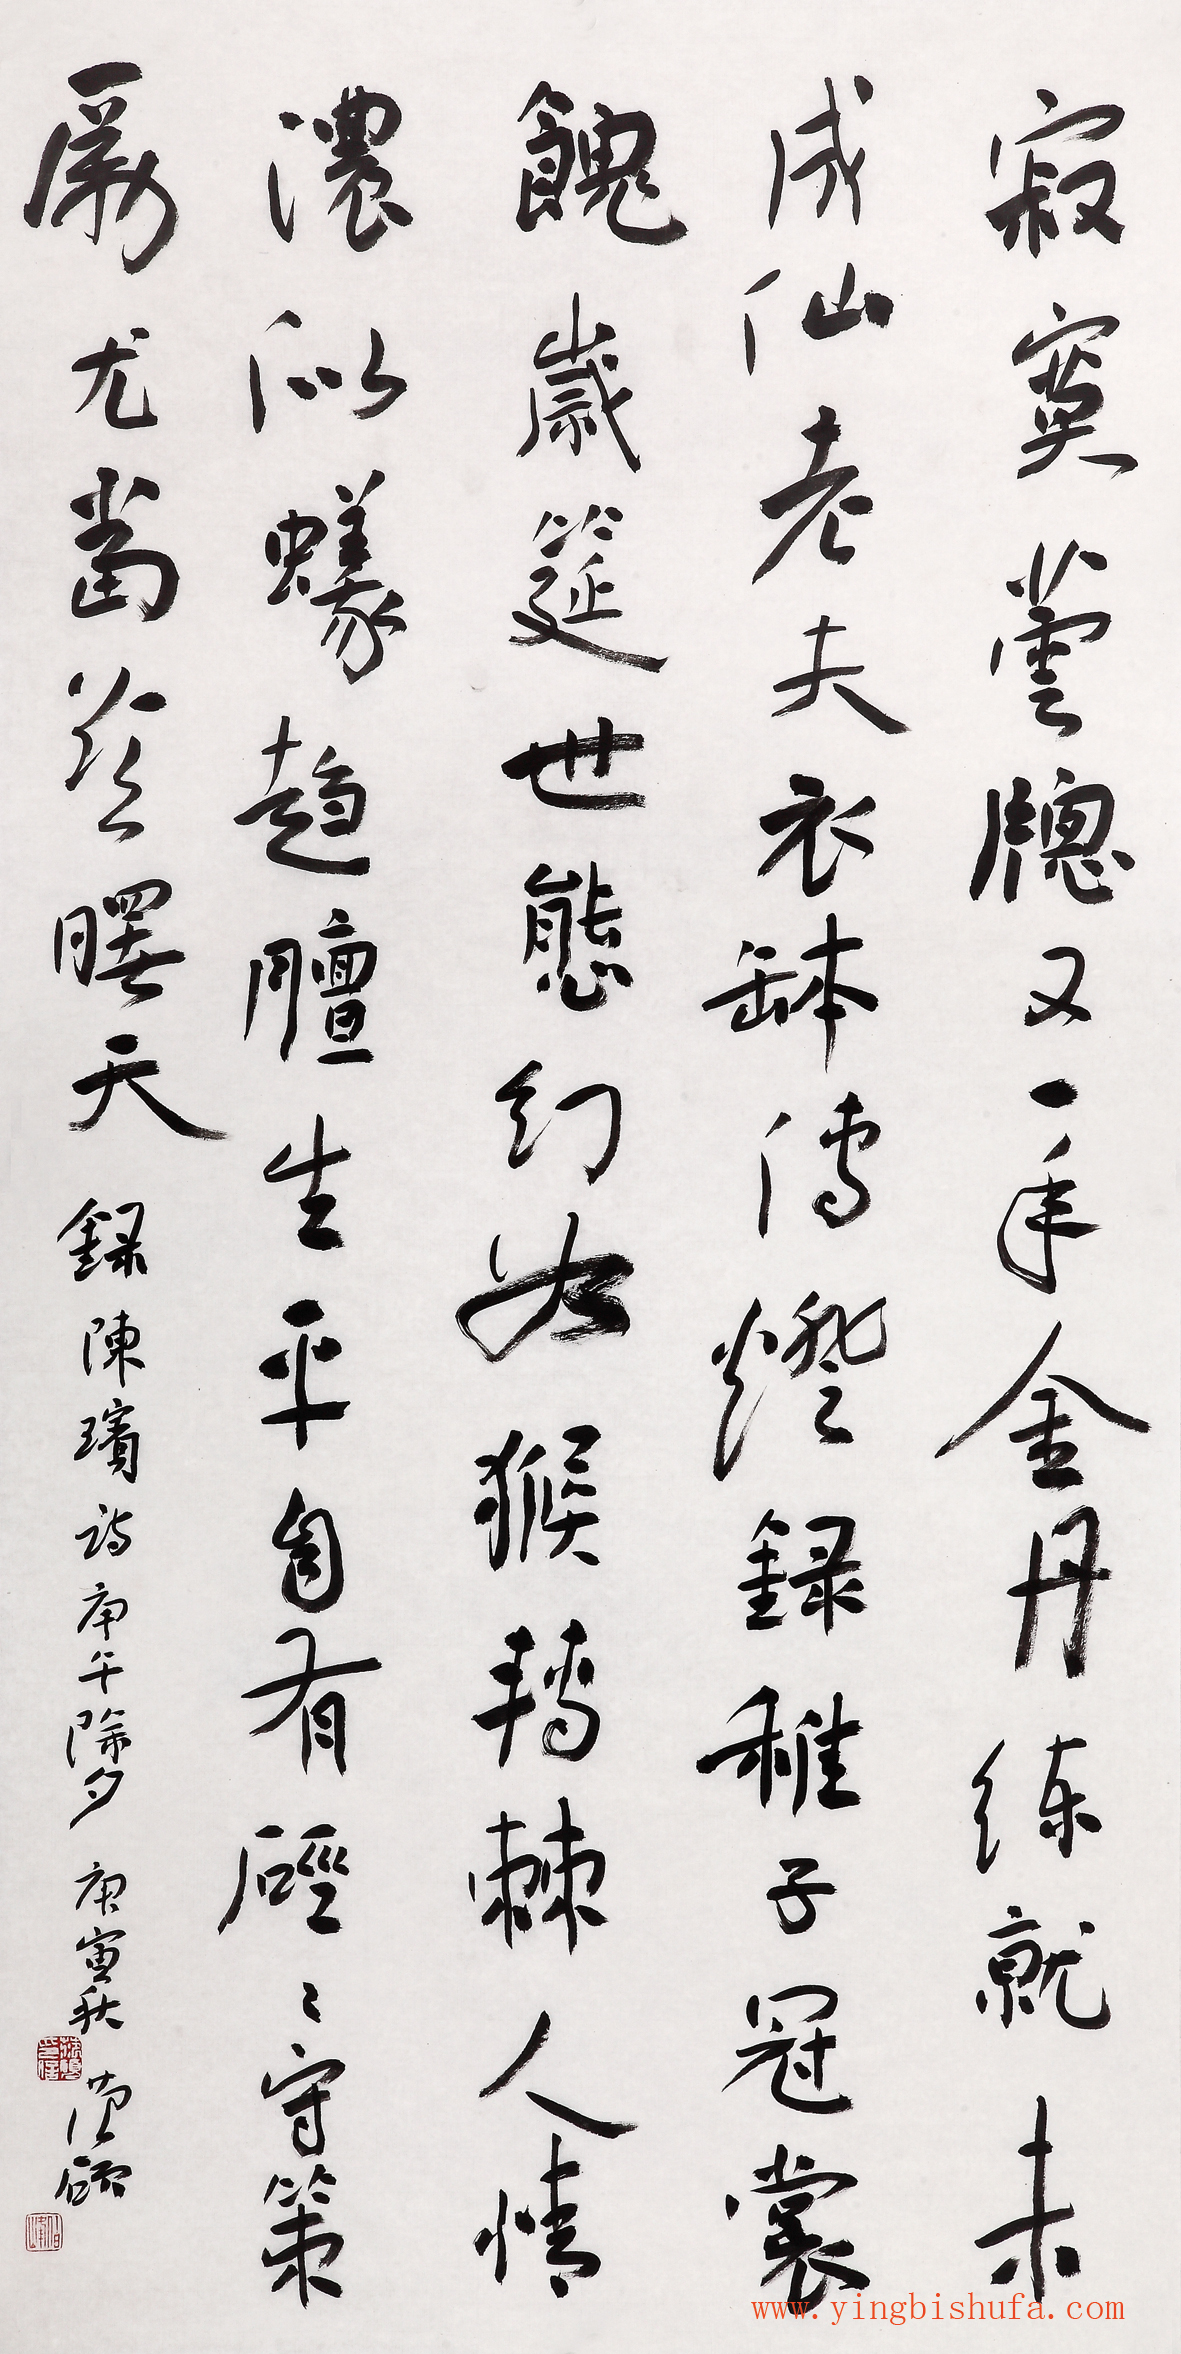 寂寞芸牕又一年金丹练就未
成仙老夫衣鉢傳燈録稚子冠裳
餽歲筵世態幻如猴轉棘人情
濃似蟻趨羶生平自有硜〻守策
勵尤當炎曙天
録陳璸詩庚午除夕 庚寅秋 范碩
www.yingbishufa.com